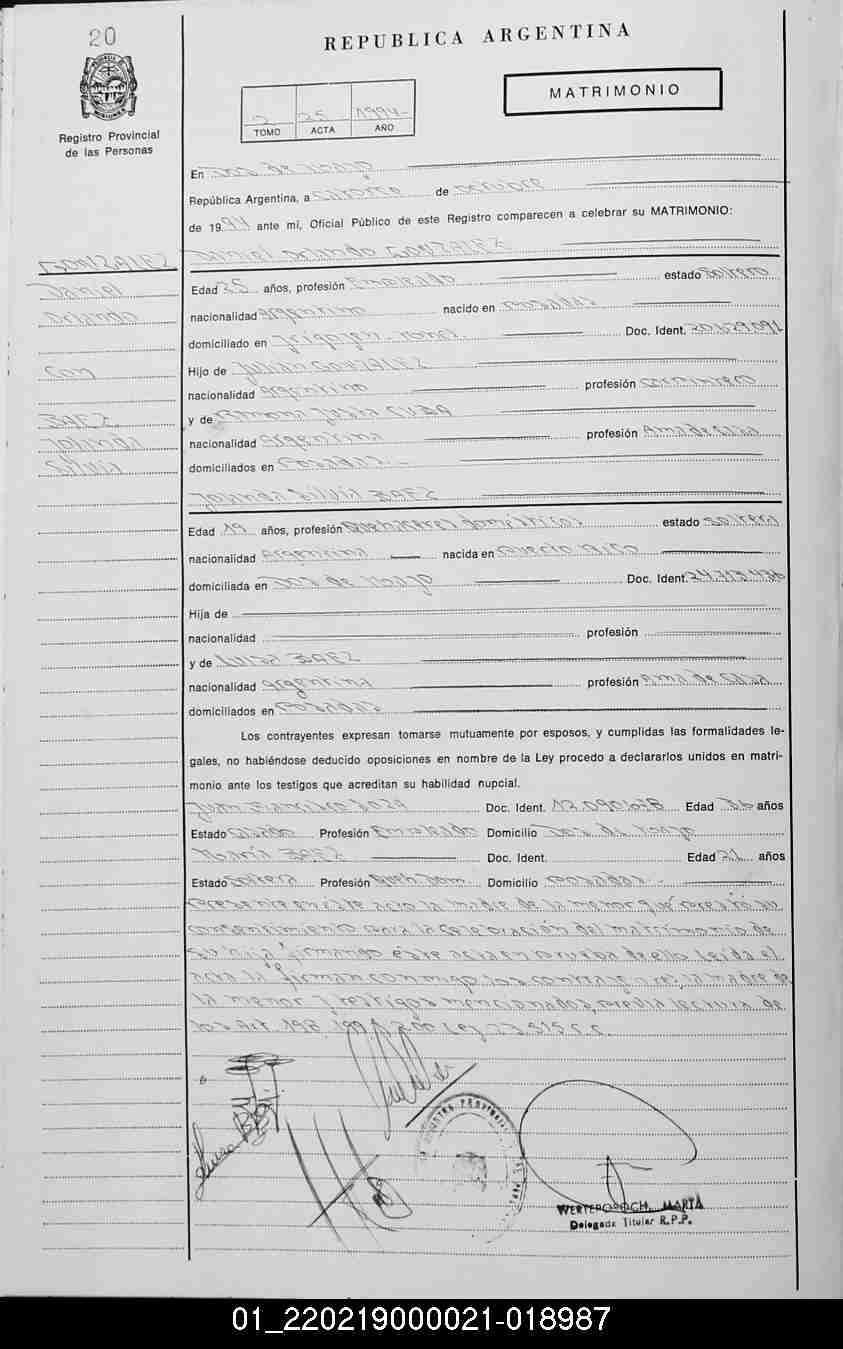 20
REPUBLICA ARGENTINA
MATRIMONIO
2 25 1994
TOMO ACTA AÑO
Registro Provincial
de las Personas
En Dos de Mayo
República Argentina, a catorce de octubre
de 1994 ante mí, Oficial Público de este Registro comparecen a celebrar su MATRIMONIO:
GONZALEZ
Daniel
Orlando
Con
BAEZ
Yolanda
Silvia
Daniel Orlando GONZALEZ
Edad 25 años, profesión Empleado estado Soltero
nacionalidad Argentino nacido en Posadas
domiciliado en Doc. Ident. 20.629.091
Hijo de Julian GONZALEZ
nacionalidad Argentino profesión
y de Ramona CUBA
nacionalidad Argentina profesión Ama de Casa
domiciliados en Posadas
Yolanda Silvia BAEZ
Edad 19 años, profesión Quehaceres domésticos estado soltera
nacionalidad Argentina nacida en Puerto Rico
domiciliada en Dos de Mayo Doc. Ident. 24.713.436
Hija de
nacionalidad profesión
y de Luisa BAEZ
nacionalidad Argentina profesión Ama de Casa
domiciliados en Posadas
Los contrayentes expresan tomarse mutuamente por esposos, y cumplidas las formalidades le-
gales, no habiéndose deducido oposiciones en nombre de la Ley procedo a declararlos unidos en matri-
monio ante los testigos que acreditan su habilidad nupcial.
Juan Francisco SOZA Doc. Ident. 12.090.678 Edad 36 años
Estado Casado Profesión Empleado Domicilio Dos de Mayo
María BAEZ Doc. Ident. Edad 21 años
Estado Soltera Profesión Queh Dom. Domicilio Posadas
Presente en este acto la madre de la menor que prestó su
consentimiento para la celebración del matrimonio de
su hija firmando esta acta en prueba de ello Leída el
acta la firman conmigo los contrayentes la madre de
la menor y testigos mencionados, previa lectura de
los Art. 198, 199 y 200 Ley 23.515 C.C.
REGISTRO PROVINCIAL
MARTA
Delegada Titular R.P.P.
01_220219000021-018987